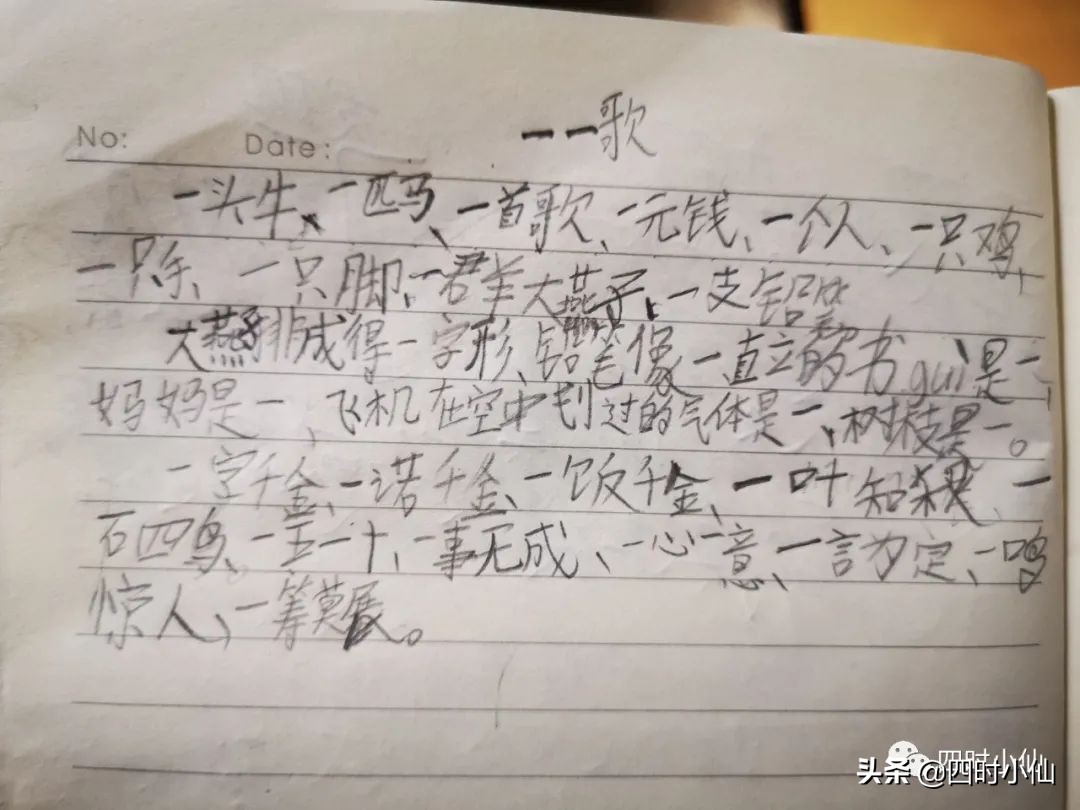 一一歌
No:
Date:
一头牛、一匹马、一首歌、一元钱、一个人、一只鸡、
一只、一只脚、一君羊大燕子、一支铅笔
大燕子排成得一字形、铅笔像一直立的书guì是一、
妈妈是一、飞机在空中刬过的气体是一、树枝是一。
一字千金、一诺千金、一饭千金、一叶知秋、一
石四鸟、一五一十、一事无成、一心一意、一言为定、一鸣
惊人、一筹莫展。
四时小仙
头条 @四时小仙